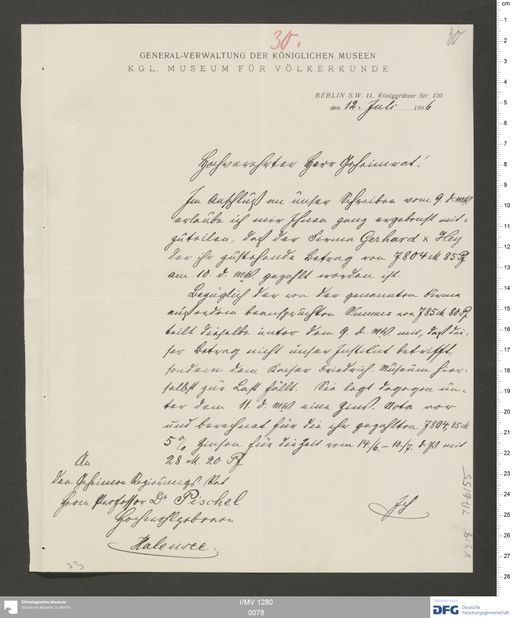 30.
30
GENERAL-VERWALTUNG DER KÖNIGLICHEN MUSEEN
KGL. MUSEUM FÜR VÖLKERKUNDE
BERLIN S.W. 11, Königgrätzer Str. 120
den 12. Juli 1906
Hochverehrter Herr Geheimrat!
Im Anschluß an unser Schreiben vom 9. d. Mts.
erlaube ich mir Ihnen ganz ergebenst mit-
zuteilen, daß der Firma Gerhard & Hey
der ihr zustehende Betrag von 7804 M 85 Pf
am 10. d. Mts. gezahlt worden ist.
Bezüglich der von der genannten Firma
außerdem beanspruchten Summe von 785 M 80 Pf
teilt dieselbe unter dem 9. d. Mts. mit, daß die-
ser Betrag nicht unser Institut betrifft,
sondern dem Kaiser Friedrich-Museum hier-
selbst zur Last fällt. Sie legt dagegen un-
ter dem 11. d. Mts. eine Zins-Nota vor
und berechnet für die ihr gezahlten 7804,85 M
5% Zinsen für die Zeit vom 14/6.–10/7. d. Js mit
28 M. 20 Pf
An
den Geheimen Regierungs-Rat
Herrn Professor Dr Pischel
Hochwohlgeboren
Halensee.
Ich
I/MV 1280
0078
Ethnologisches Museum
Staatliche Museen zu Berlin
DFG Deutsche
Forschungsgemeinschaft